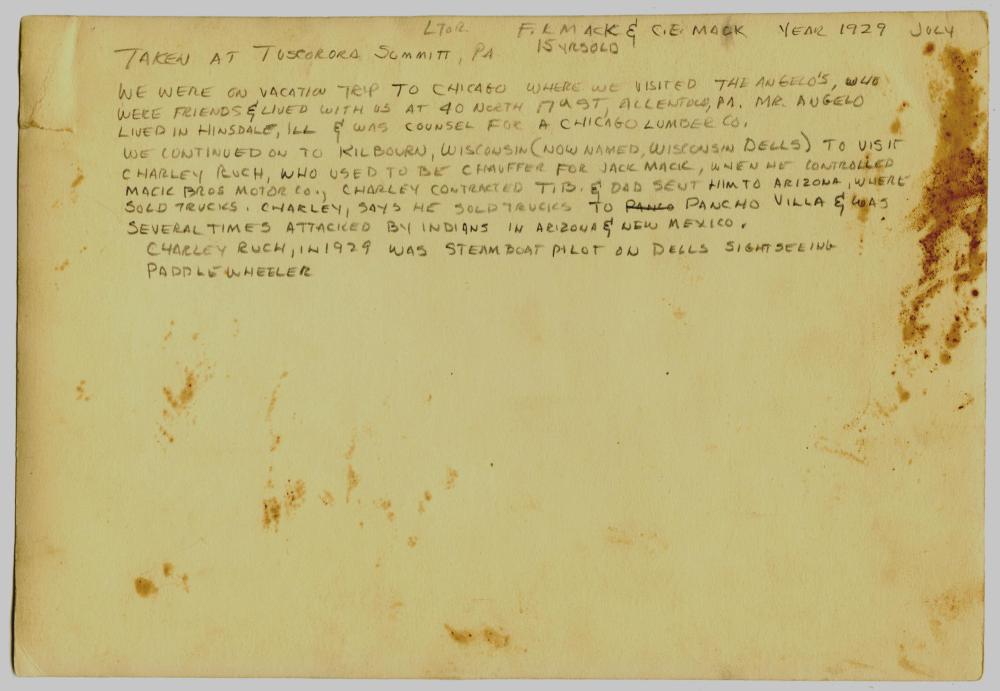 L TO R. F.L MACK & C.E. MACK YEAR 1929 JULY
15 YRS OLD
TAKEN AT TUSCORORA SUMMITT, PA.
WE WERE ON VACATION TRIP TO CHICAGO WHERE WE VISITED THE ANGELO'S, WHO
WERE FRIENDS & LIVED WITH US AT 40 NORTH 17TH ST, ALLENTOWN, PA. MR. ANGELO
LIVED IN HINSDALE, ILL & WAS COUNSEL FOR A CHICAGO LUMBER CO.
WE CONTINUED ON TO KILBOURN, WISCONSIN (NOW NAMED, WISCONSIN DELLS) TO VISIT
CHARLEY RUCH, WHO USED TO BE CHAUFFER FOR JACK MACK, WHEN HE CONTROLLED
MACK BROS MOTOR CO., CHARLEY CONTRACTED T.B. & DAD SENT HIM TO ARIZONA, WHERE
SOLD TRUCKS. CHARLEY, SAYS HE SOLD TRUCKS TO PANCO PANCHO VILLA & WAS
SEVERAL TIMES ATTACKED BY INDIANS IN ARIZONA & NEW MEXICO.
CHARLEY RUCH, IN 1929 WAS STEAMBOAT PILOT ON DELLS SIGHTSEEING
PADDLE WHEELER